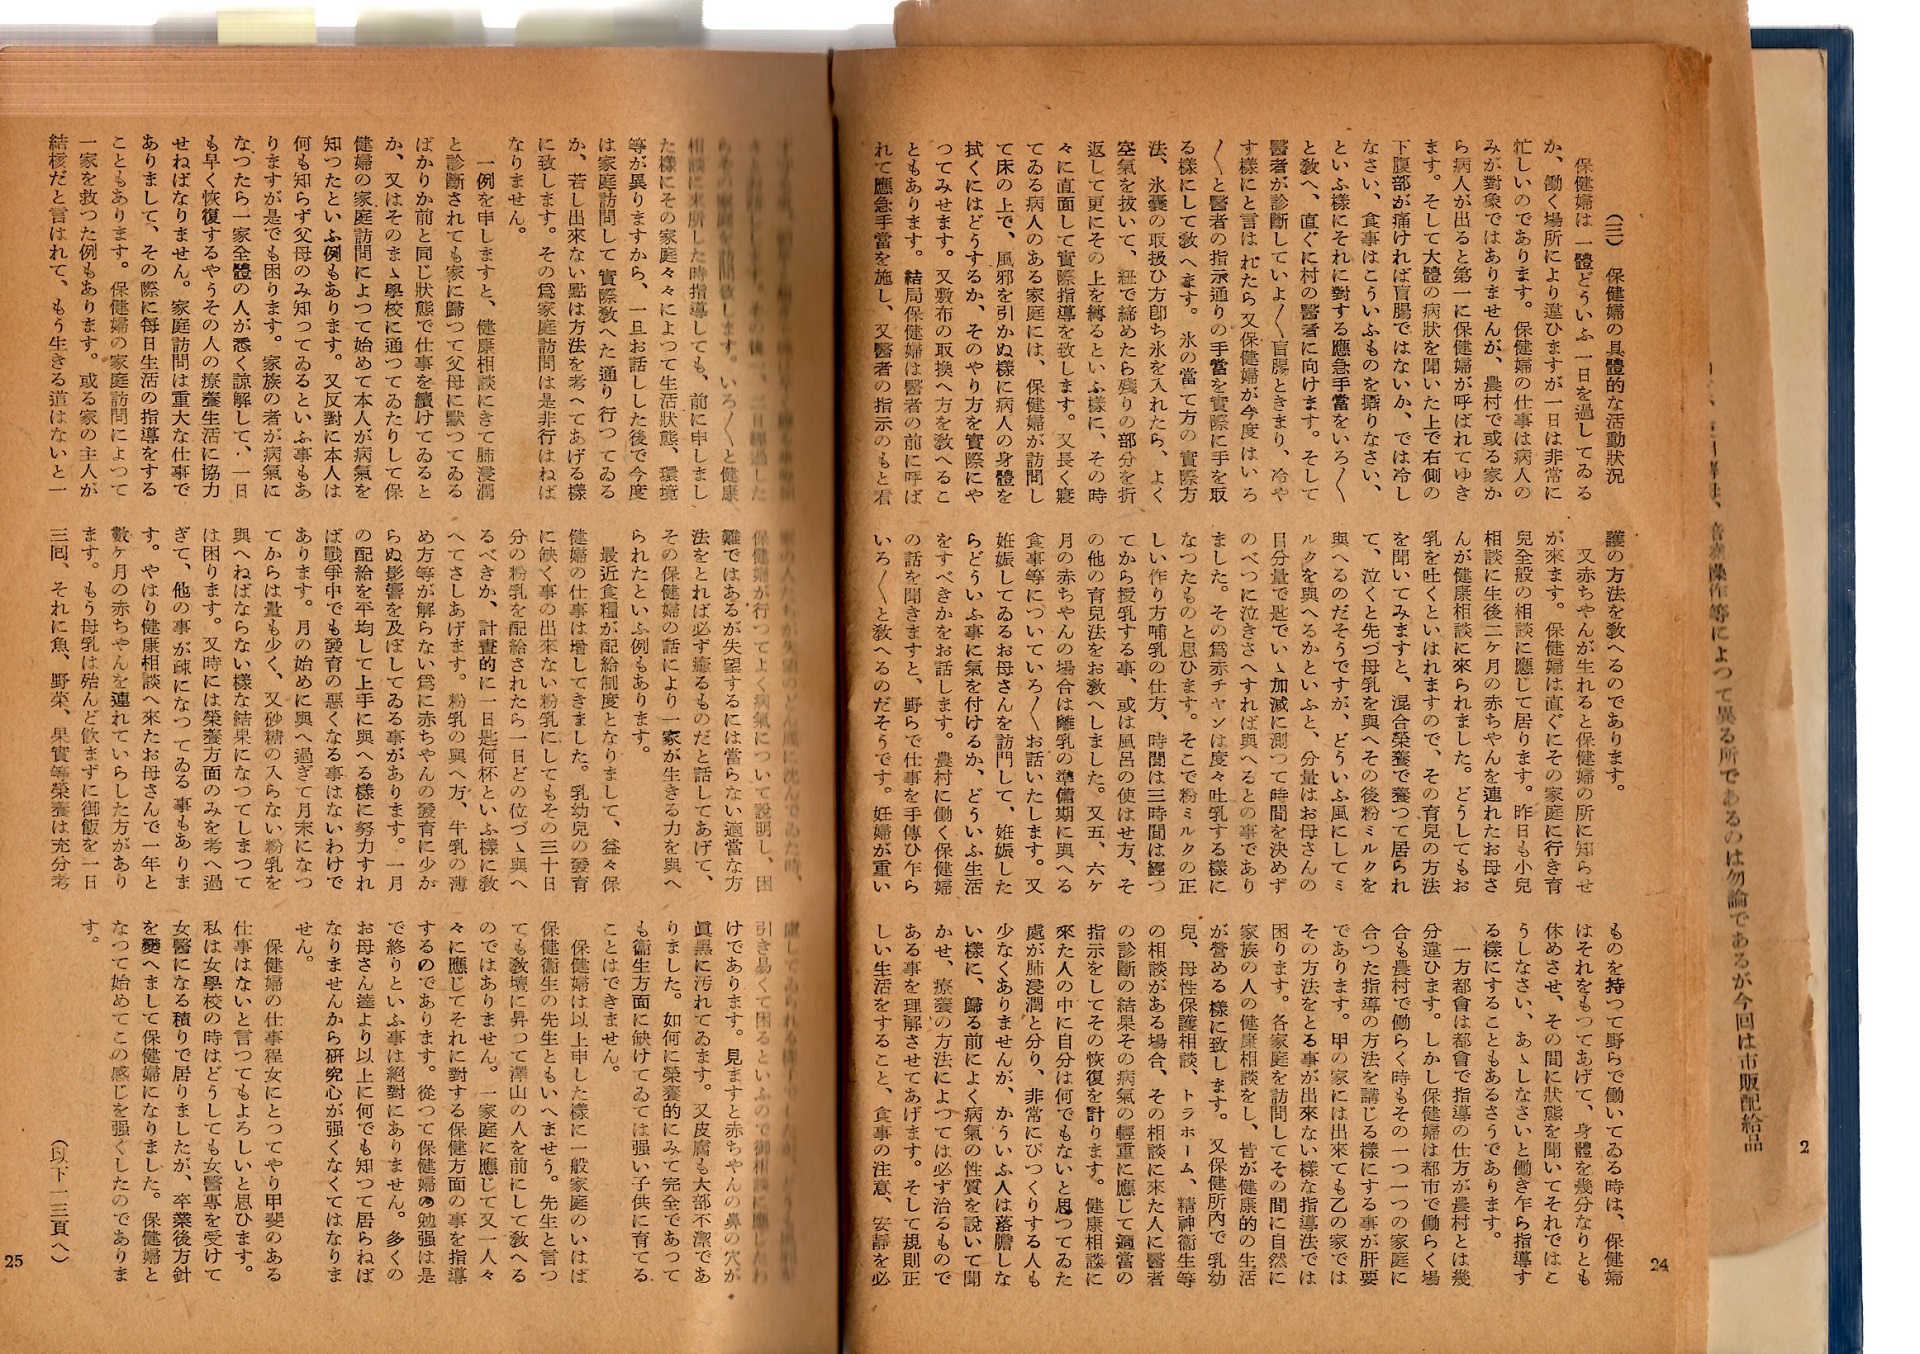 (三) 保健婦の具體的な活動狀況
保健婦は一體どういふ一日を過してゐる
か、働く場所により違ひますが一日は非常に
忙しいのであります。保健婦の仕事は病人の
みが對象ではありませんが、農村で或る家か
ら病人が出ると第一に保健婦が呼ばれてゆき
ます。そして大體の病狀を聞いた上で右側の
下腹部が痛ければ盲腸ではないか、では冷し
なさい、食事はこういふものを攝りなさい、
といふ樣にそれに對する應急手當をいろ〱
と敎へ、直ぐに村の醫者に向けます。そして
醫者が診斷していよ〱盲腸ときまり、冷や
す樣にと言はれたら又保健婦が今度はいろ
〱と醫者の指示通りの手當を實際に手を取
る樣にして敎へます。氷の當て方の實際方
法、氷囊の取扱ひ方卽ち氷を入れたら、よく
空氣を拔いて、紐で締めたら殘りの部分を折
返して更にその上を縛るといふ樣に、その時
々に直面して實際指導を致します。又長く寢
てゐる病人のある家庭には、保健婦が訪問し
て床の上で、風邪を引かぬ樣に病人の身體を
拭くにはどうするか、そのやり方を實際にや
つてみせます。又敷布の取換へ方を敎へるこ
ともあります。結局保健婦は醫者の前に呼ば
れて應急手當を施し、又醫者の指示のもと看
護の方法を敎へるのであります。
又赤ちやんが生れると保健婦の所に知らせ
が來ます。保健婦は直ぐにその家庭に行き育
兒全般の相談に應じて居ります。昨日も小兒
相談に生後二ヶ月の赤ちやんを連れたお母さ
んが健康相談に來られました。どうしてもお
乳を吐くといはれますので、その育兒の方法
を聞いてみますと、混合榮養で養つて居られ
て、泣くと先づ母乳を與へその後粉ミルクを
與へるのだそうですが、どういふ風にしてミ
ルクを與へるかといふと、分量はお母さんの
目分量で匙でいゝ加減に測つて時間を決めず
のべつに泣きさへすれば與へるとの事であり
ました。その爲赤チャンは度々吐乳する樣に
なつたものと思ひます。そこで粉ミルクの正
しい作り方哺乳の仕方、時間は三時間は經つ
てから授乳する事、或は風呂の使はせ方、そ
の他の育兒法をお敎へしました。又五、六ヶ
月の赤ちやんの場合は離乳の準備期に與へる
食事等についていろ〱お話いたします。又
妊娠してゐるお母さんを訪問して、妊娠した
らどういふ事に氣を付けるか、どういふ生活
をすべきかをお話します。農村に働く保健婦
の話を聞きますと、野らで仕事を手傳ひ乍ら
いろ〱と敎へるのだそうです。妊婦が重い
ものを持つて野らで働いてゐる時は、保健婦
はそれをもつてあげて、身體を幾分なりとも
休めさせ、その間に狀態を聞いてそれではこ
うしなさい、あゝしなさいと働き乍ら指導す
る樣にすることもあるさうであります。
一方都會は都會で指導の仕方が農村とは幾
分違ひます。しかし保健婦は都市で働らく場
合も農村で働らく時もその一つ一つの家庭に
合つた指導の方法を講じる樣にする事が肝要
であります。甲の家には出來ても乙の家では
その方法をとる事が出來ない樣な指導法では
困ります。各家庭を訪問してその間に自然に
家族の人の健康相談をし、皆が健康的の生活
が營める樣に致します。又保健所內で乳幼
兒、母性保護相談、トラホーム、精神衞生等
の相談がある場合、その相談に來た人に醫者
の診斷の結果その病氣の輕重に應じて適當の
指示をしてその恢復を計ります。健康相談に
來た人の中に自分は何でもないと思つてゐた
處が肺浸潤と分り、非常にびつくりする人も
少なくありませんが、かういふ人は落膽しな
い樣に、歸る前によく病氣の性質を說いて聞
かせ、療養の方法によつては必ず治るもので
ある事を理解させてあげます。そして規則正
しい生活をすること、食事の注意、安靜を必
24
2
音盤操作等によつて異る所であるのは勿論であるが今回は市販配給品
を訪問致します。いろ〱と健康
相談に來所した時指導しても、前に申しまし
た樣にその家庭々々によつて生活狀態、環境
等が異りますから、一旦お話しした後で今度
は家庭訪問して實際敎へた通り行つてゐる
か、若し出來ない點は方法を考へてあげる樣
に致します。その爲家庭訪問は是非行はねば
なりません。
一例を申しますと、健康相談にきて肺浸潤
と診斷されても家に歸つて父母に默つてゐる
ばかりか前と同じ狀態で仕事を續けてゐると
か、又はそのまゝ學校に通つてゐたりして保
健婦の家庭訪問によつて始めて本人が病氣を
知つたといふ例もあります。又反對に本人は
何も知らず父母のみ知つてゐるといふ事もあ
りますが是でも困ります。家族の者が病氣に
なつたら一家全體の人が悉く諒解して、一日
も早く恢復するやうその人の療養生活に協力
せねばなりません。家庭訪問は重大な仕事で
ありまして、その際に每日生活の指導をする
こともあります。保健婦の家庭訪問によつて
一家を救つた例もあります。或る家の主人が
結核だと言はれて、もう生きる道はないと一
家の人たちが失望のどん底に沈んでゐた時、
保健婦が行つてよく病氣について說明し、困
難ではあるが失望するには當らない適當な方
法をとれば必ず癒るものだと話してあげて、
その保健婦の話により一家が生きる力を與へ
られたといふ例もあります。
最近食糧が配給制度となりまして、益々保
健婦の仕事は增してきました。乳幼兒の發育
に缺く事の出來ない粉乳にしてもその三十日
分の粉乳を配給されたら一日どの位づゝ與へ
るべきか、計畫的に一日匙何杯といふ樣に敎
へてさしあげます。粉乳の與へ方、牛乳の薄
め方等が解らない爲に赤ちやんの發育に少か
らぬ影響を及ぼしてゐる事があります。一月
の配給を平均して上手に與へる樣に努力すれ
ば戰爭中でも發育の惡くなる事はないわけで
あります。月の始めに與へ過ぎて月末になつ
てからは量も少く、又砂糖の入らない粉乳を
與へねばならない樣な結果になつてしまつて
は困ります。又時には榮養方面のみを考へ過
ぎて、他の事が疎になつてゐる事もありま
す。やはり健康相談へ來たお母さんで一年と
數ヶ月の赤ちやんを連れていらした方があり
ます。もう母乳は殆んど飮まずに御飯を一日
三回、それに魚、野菜、果實等榮養は充分考
慮してゐられる樣子でしたが、どうも風邪を
引き易くて困るといふので御相談に應じたわ
けであります。見ますと赤ちやんの鼻の穴が
眞黑に汚れてゐます。又皮膚も大部不潔であ
りました。如何に榮養的にみて完全であつて
も衞生方面に缺けてゐては强い子供に育てる
ことはできません。
保健婦は以上申した樣に一般家庭のいはば
保健衞生の先生ともいへませう。先生と言つ
ても敎壇に昇つて澤山の人を前にして敎へる
のではありません。一家庭に應じて又一人々
々に應じてそれに對する保健方面の事を指導
するのであります。從つて保健婦の勉强は是
で終りといふ事は絕對にありません。多くの
お母さん達より以上に何でも知つて居らねば
なりませんから硏究心が强くなくてはなりま
せん。
保健婦の仕事程女にとつてやり甲斐のある
仕事はないと言つてもよろしいと思ひます。
私は女學校の時はどうしても女醫專を受けて
女醫になる積りで居りましたが、卒業後方針
を變へまして保健婦になりました。保健婦と
なつて始めてこの感じを强くしたのでありま
す。
(以下一三頁へ)
25